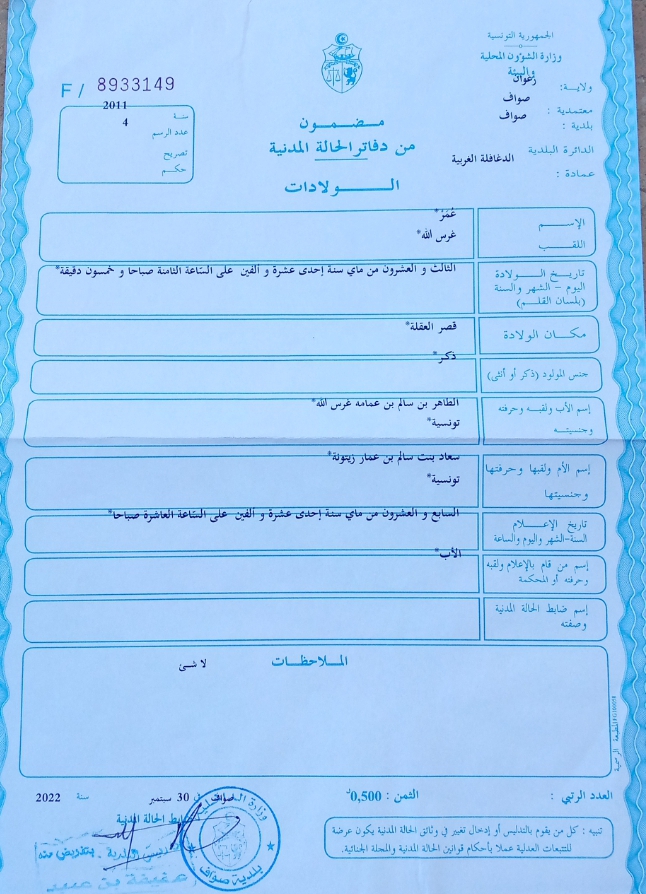 الجمهورية التونسية
وزارة الشؤون المحلية
والبيئة
ولاية: زغوان
معتمدية : صواف
بلدية : صواف
الدائرة البلدية
عمادة : الدغافلة الغربية
F / 8933149
سنة 2011
عدد الرسم 4
تصريح
حكم
مضمون
من دفاتر الحالة المدنية
الولادات
الإسم عُمَرْ*
اللقب غرس الله*
تاريخ الولادة
اليوم - الشهر والسنة
(بلسان القلم)
الثالث و العشرون من ماي سنة إحدى عشرة و ألفين على السّاعة الثامنة صباحا و خمسون دقيقة*
مكان الولادة قصر العقلة*
جنس المولود (ذكر أو أنثى) ذكر*
إسم الأب ولقبه وحرفته
وجنسيته
الطاهر بن سالم بن عمامه غرس الله*
تونسية*
إسم الأم ولقبها وحرفتها
وجنسيتها
سعاد بنت سالم بن عمار زيتونة*
تونسية*
تاريخ الإعلام
السنة-الشهر واليوم والساعة
السابع و العشرون من ماي سنة إحدى عشرة و ألفين على السّاعة العاشرة صباحا*
إسم من قام بالإعلام ولقبه
وحرفته أو المحكمة
الأب*
إسم ضابط الحالة المدنية
وصفته
الملاحظات
لا شئ
العدد الرتبي :
الثمن : 0,500د
صواف في 30 سبتمبر سنة 2022
ضابط الحالة المدنية
تنبيه : كل من يقوم بالتدليس أو إدخال تغيير في وثائق الحالة المدنية يكون عرضة
للتتبعات العدلية عملا بأحكام قوانين الحالة المدنية والمجلة الجنائية.
بلدية صواف